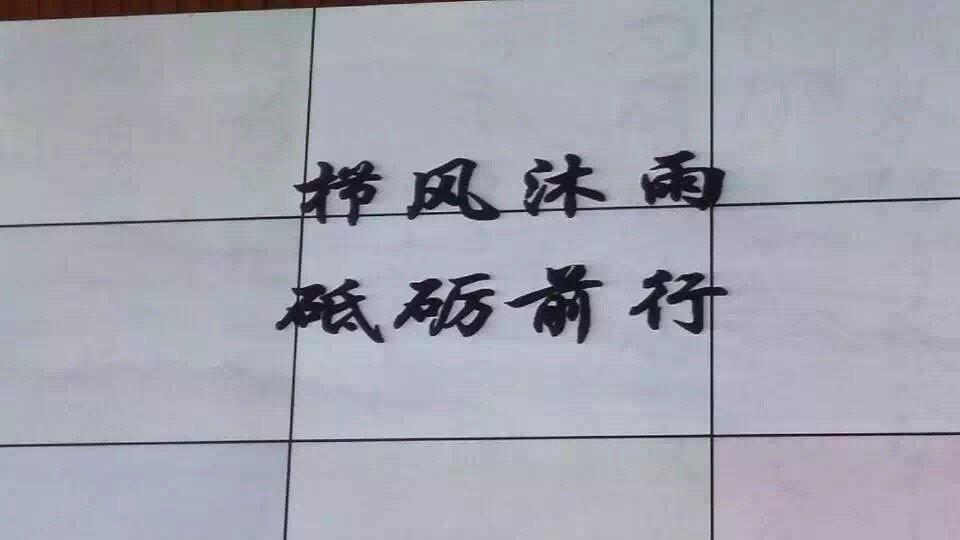 栉风沐雨
砥砺前行